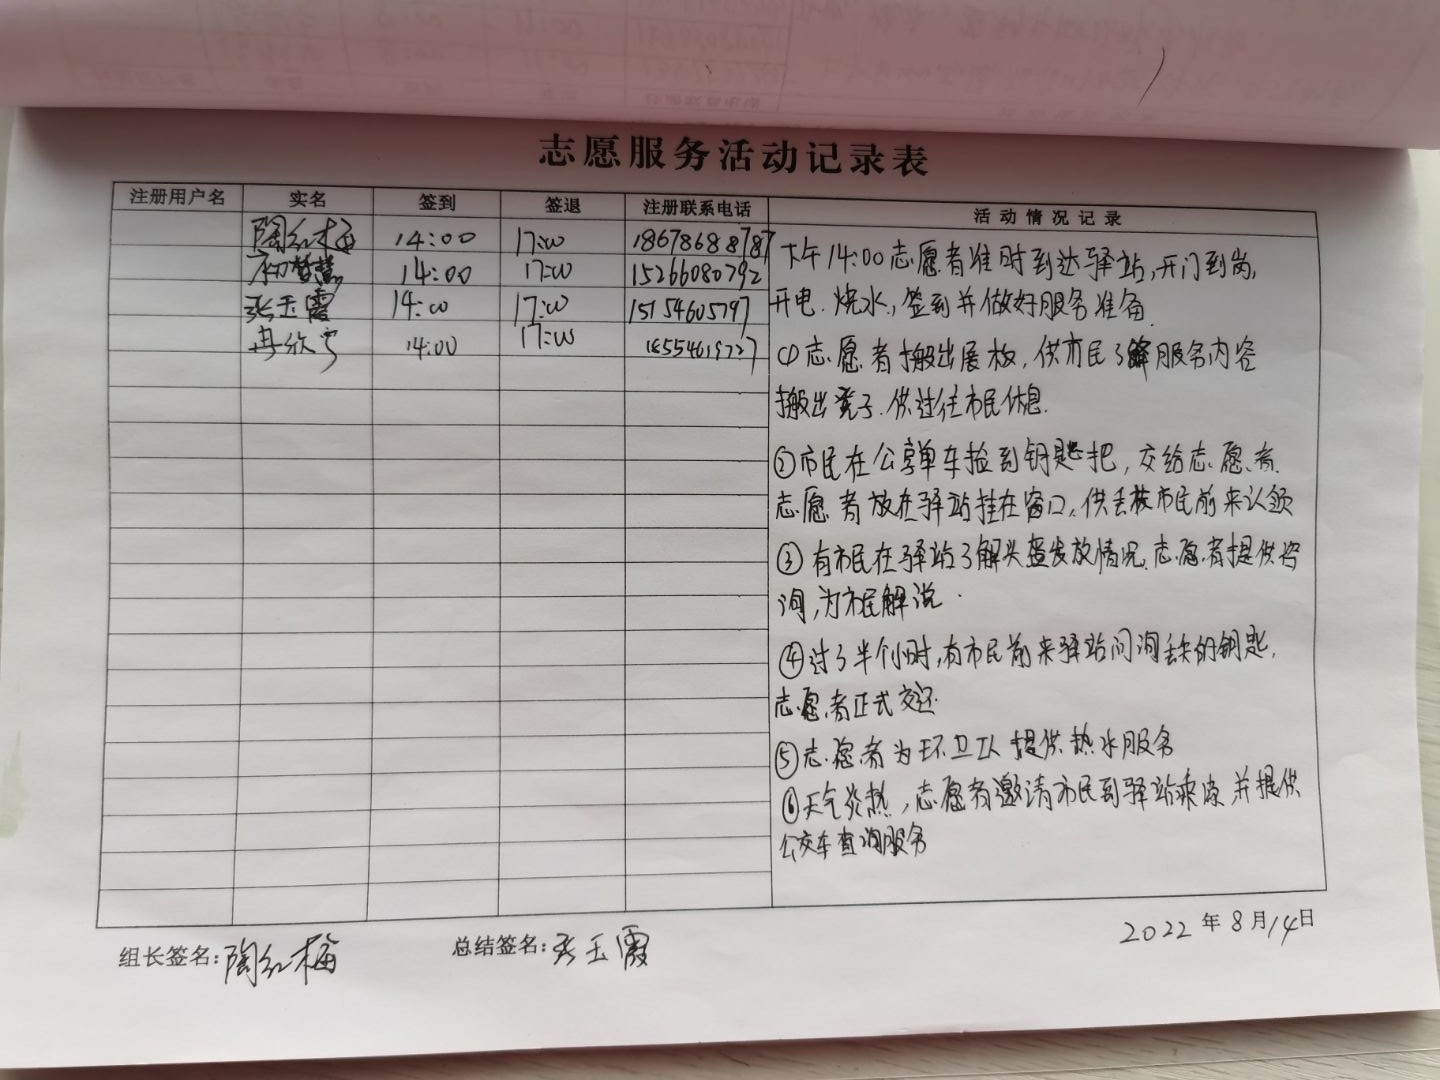 志愿服务活动记录表
注册用户名 实名 签到 签退 注册联系电话 活动情况记录
陶红梅 14:00 17:00 18678688787
初 14:00 17:00 15266080792
张玉霞 14:00 17:00 15154605797
冉欣 14:00 17:00
下午14:00志愿者准时到达驿站,开门到岗,
开电.烧水.,签到并做好服务准备.
①志愿者搬出展板,供市民了解服务内容
搬出凳子.供过往市民休息.
②市民在公享单车捡到钥匙把,交给志愿者.
志愿者放在驿站挂在窗口,供丢失市民前来认领
③有市民在驿站了解头盔发放情况.志愿者提供咨
询,为市民解说.
④过了半个小时,有市民前来驿站问询丢失的钥匙.
志愿者正式交还.
⑤志愿者为环卫工人提供热水服务
⑥天气炎热,志愿者邀请市民到驿站乘凉,并提供
公交车查询服务
组长签名:陶红梅 总结签名:张玉霞 2022年8月14日